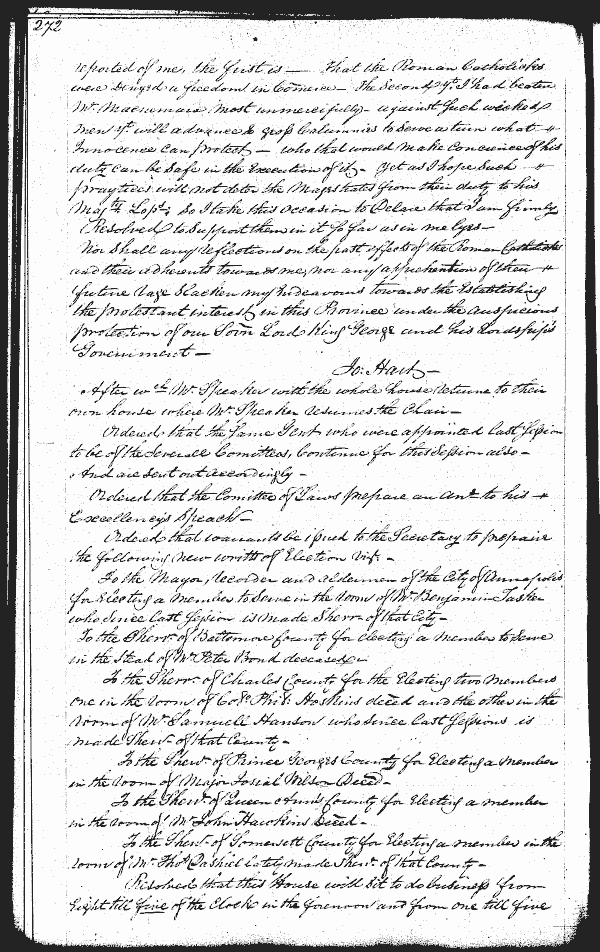 272
reported of me, the first is — That the Roman Catholicks
were denyed a freedom in Comerce — the Second yt. I had beaten
Mr. Macnemara most unmercifully — against such wicked
men yt. will advance gross Calumnies to serve a turn what
Innocence can protect — who that would make Concience of his
duty can be safe in the Execution of it — yet as I hope such
practices will not deter the Magistrates from their duty to his
Majty. & Lopt: So I take this occasion to Declare that I am firmly
Resolved to support them in it so far as in me lyes —
Nor shall any reflections on the past effects of the Roman Catholicks
and their adherents towards me, nor any apprehention of their
future rage slacken my Endeavours towards the Establishing
the protestant interest in this Province under the auspicious
protection of our Sovn Lord King George and his Lordships
Government —
Jo: Hart —
After wch. Mr. Speaker with the whole house returne to their
own house where Mr. Speaker resumes the Chair —
Ordered that the same Gent. who were appointed last Session
to be of the severall Comittees, Continue for this Session also —
And are sent out accordingly —
Ordered that the Comittee of Laws prepare an ansr. to his
Excellency's Speach —
Ordered that warrants be issued to the Secretary to prepair
the following new writts of Election vizt. —
To the Mayor, recorder and aldermen of the City of Annapolis
for Electing a Member to serve in the room of Mr. Benjamin Tasker
who since last Session is made Sherr. of that City —
To the Sherr. of Baltimore County for electing a member to serve
in the Stead of Mr. Peter Bond deceased —
To the Sherr. of Charles County for the Electing two Members
one in the room of Coll. Phil: Hoskins deced and the other in the
room of Mr. Samuell Hanson who since last Sessions is
made Sherr. of that County —
To the Sherr. of Prince Georges County for Electing a member
in the room of Major Josiah Wilson Deced —
To the Sherr. of Queen Anns County for Electing a member
in the room of Mr. John Hawkins Deced —
To the Sherr. of Somersett County for Electing a member in the
room of Mr. Thos. Dashiel Lately made Sherr. of that County —
Resolved that this House will sit to do business from
Eight till five of the Clock in the forenoon and from one till five